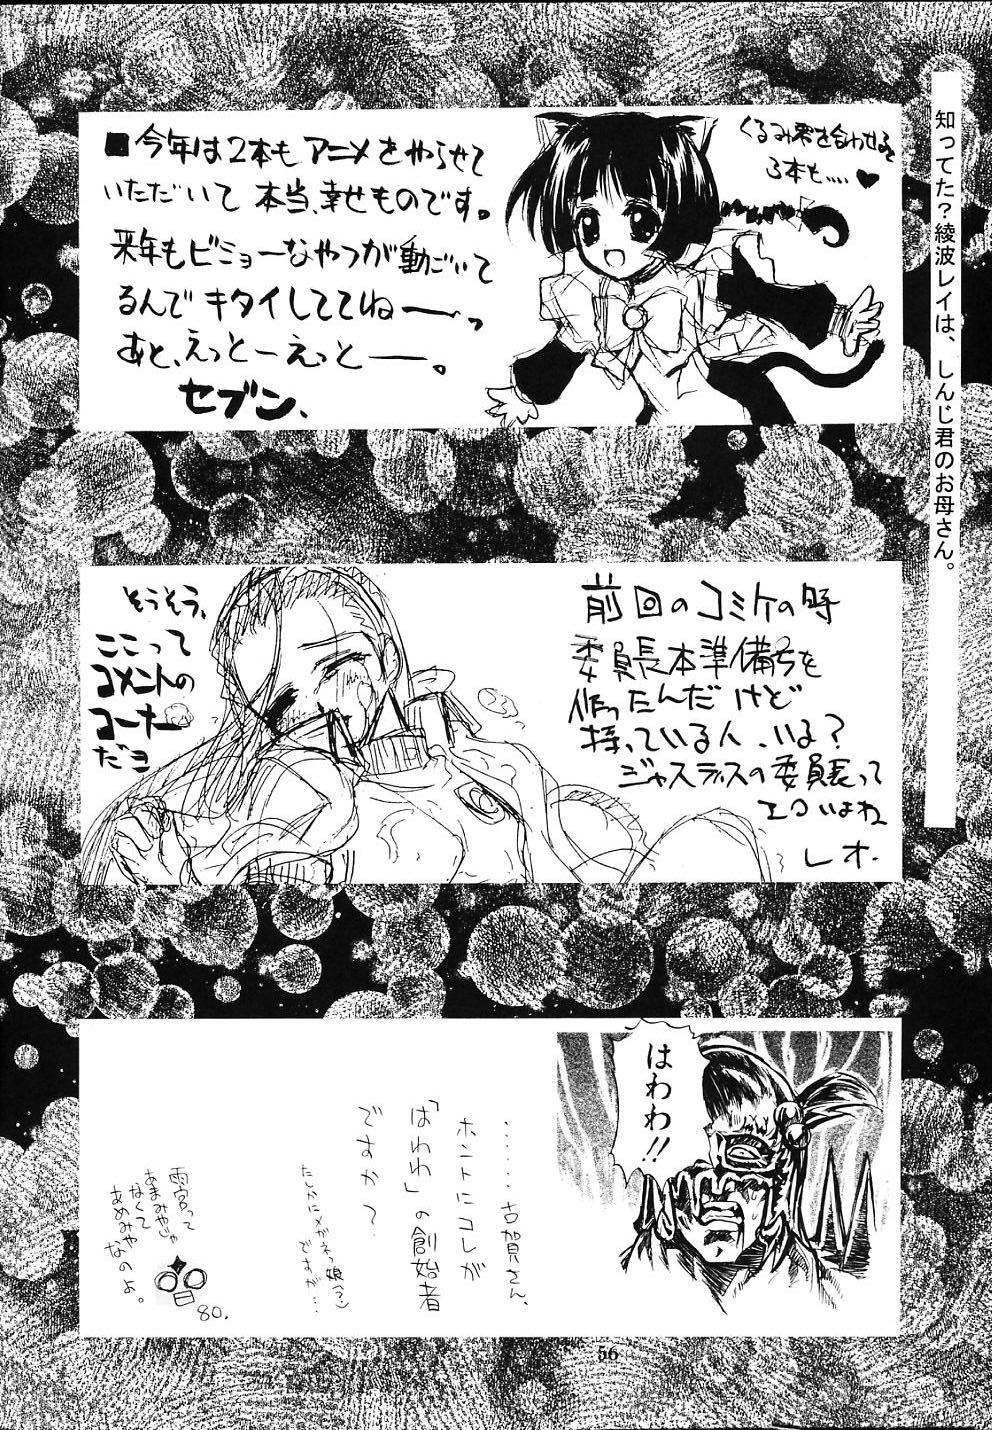 知ってた?綾波レイは、しんじ君のお母さん。
■今年は2本もアニメをやらせて
いただいて 本当、幸せものです。
来年もビミョーなやつが動ごいて
るんで キタイしててねー〜っ
あと、えっとーえっとー——。
セブン、
くるみ
を合わせると
3本も‥‥♥
前回のコミケの時
委員長本準備号を
作ったんだけど
持っている人、いる?
ジャスティスの委員長って
エロいよね
レオ.
そうそう、
ここって
コメントの
コーナー
だヨ
はわわ!!
‥‥‥古賀さん、
ホントにコレが
「はわわ」の創始者
ですか?
たしかにメガネっ娘(?)
ですが…
雨宮って
あまみやじゃ
なくて
あめみや
なのよ。
80.
56